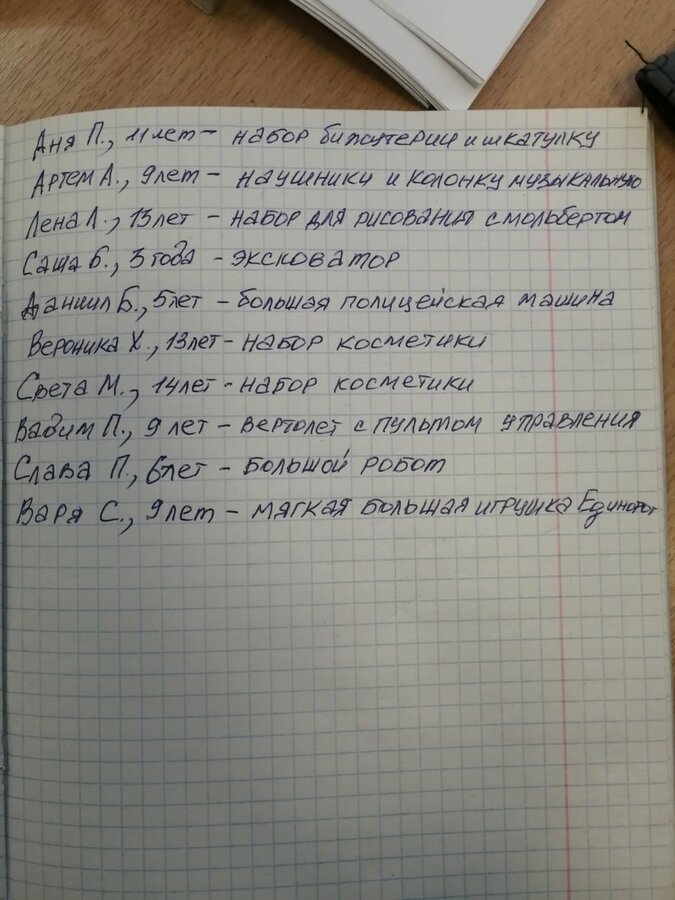 Аня П., 11 лет - набор бижутерии и шкатулку
Артем А., 9 лет - наушники и колонку музыкальную
Лена Л., 13 лет - набор для рисования с мольбертом
Саша Б., 3 года - эксковатор
Даниил Б., 5 лет - большая полицейская машина
Вероника Х., 13 лет - набор косметики
Света М., 14 лет - набор косметики
Вадим П., 9 лет - вертолет с пультом управления
Слава П., 6 лет - большой робот
Варя С., 9 лет - мягкая большая игрушка Единорог